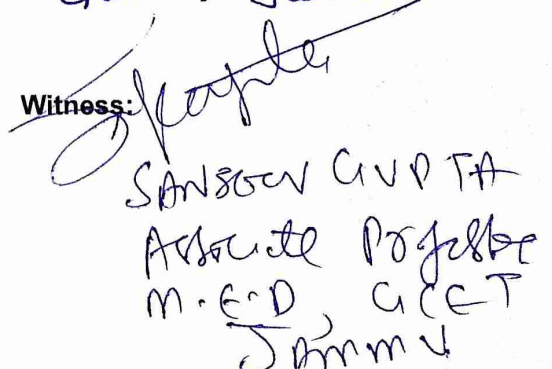 Witness:
SANJEEV GUPTA
Associate Professor
M.E.D, GCET
JAMMU